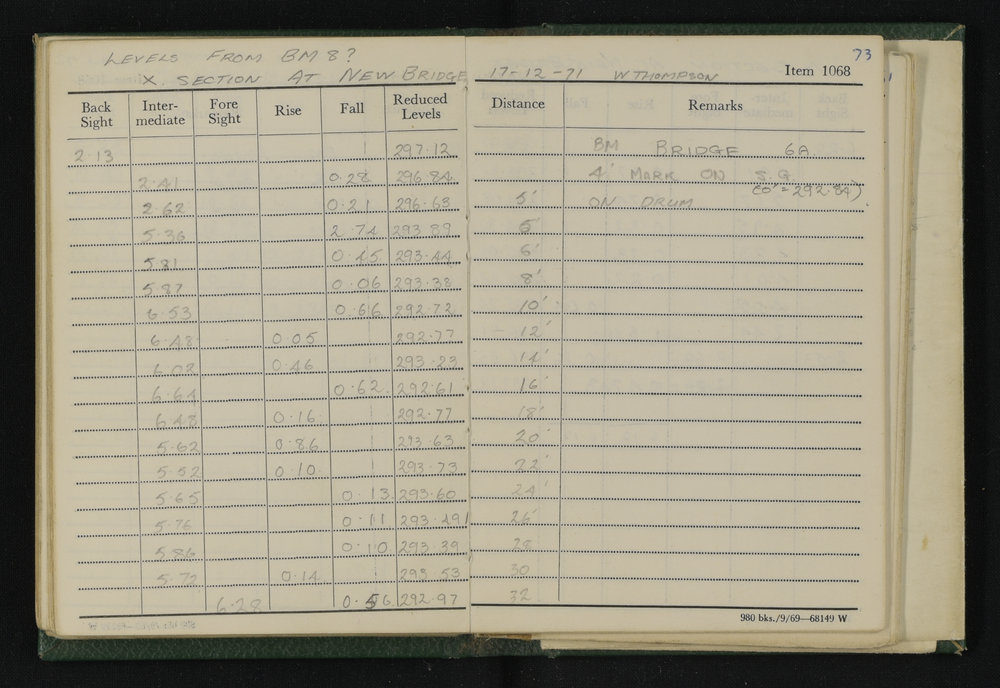 LEVELS FROM BM 8?
X. SECTION AT NEW BRIDGE 17-12-71 W THOMPSON
73
Item 1068
Back Sight Inter-mediate Fore Sight Rise Fall Reduced Levels Distance Remarks
2.13 297.12 BM BRIDGE 6A
2.41 0.28 296.84 4' MARK ON S.G (0' = 292.84)
2.62 0.21 296.63 5' ON DRUM
5.36 2.74 293.89 5
5.81 0.45 293.44 6'
5.87 0.06 293.38 8'
6.53 0.66 292.72 10'
6.48 0.05 292.77 12'
6.02 0.46 293.23 14'
6.64 0.62 292.61 16'
6.48 0.16 292.77 18'
5.62 0.86 293.63 20'
5.52 0.10 293.73 22'
5.65 0.13 293.60 24'
5.76 0.11 293.49 26'
5.86 0.10 293.39 28
5.72 0.14 293.53 30
6.28 0.56 292.97 32
980 bks./9/69—68149 W